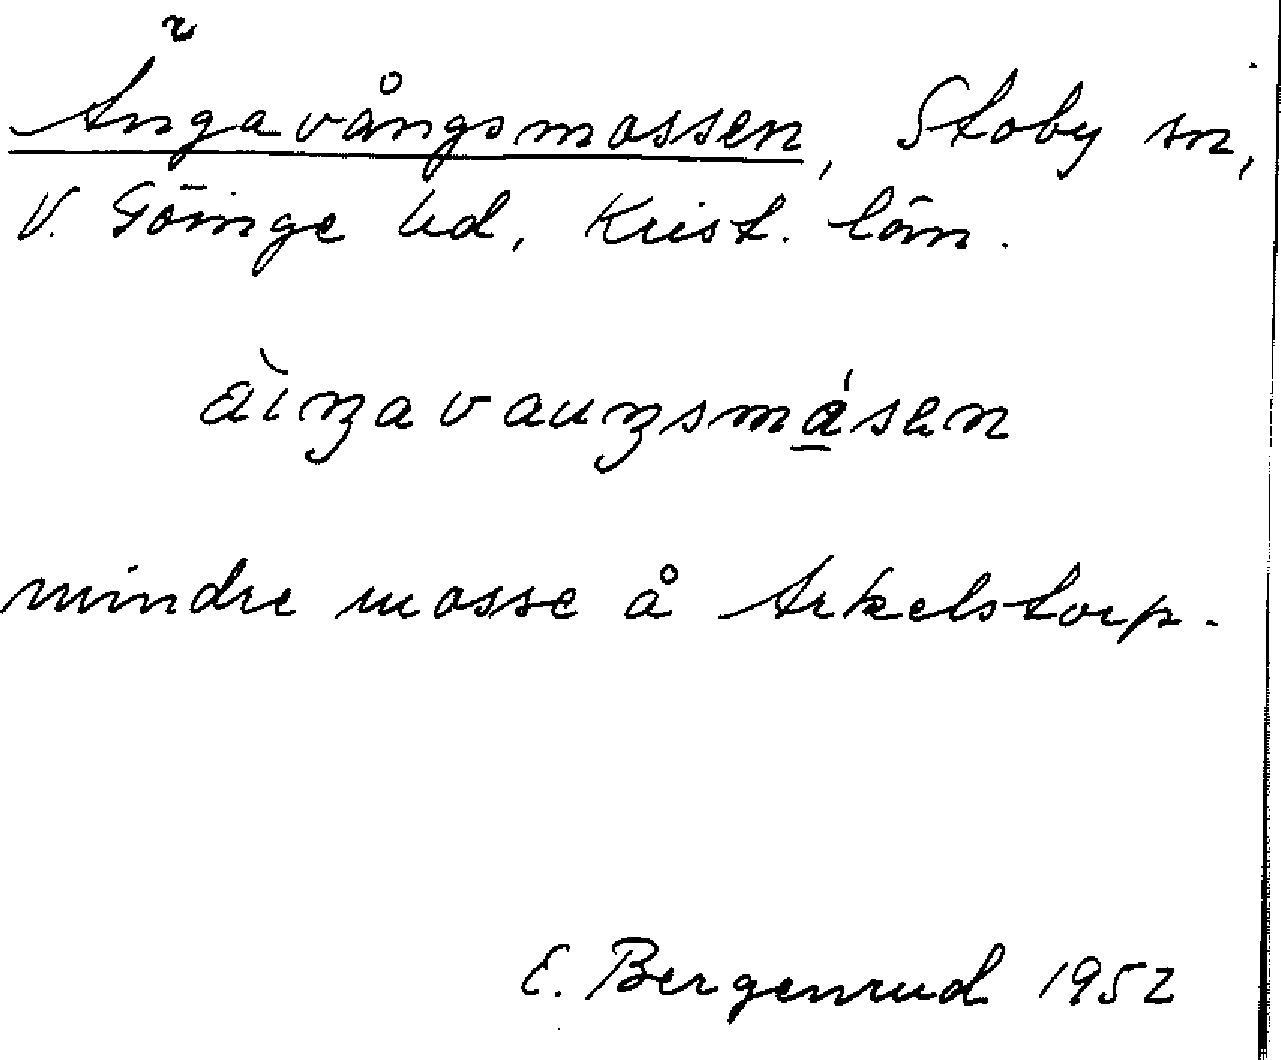 Ängavångsmossen, Stoby sn,
V. Göinge hd, Krist. län.
mindre mosse å Arkelstorp.
E. Bergenrud 1952